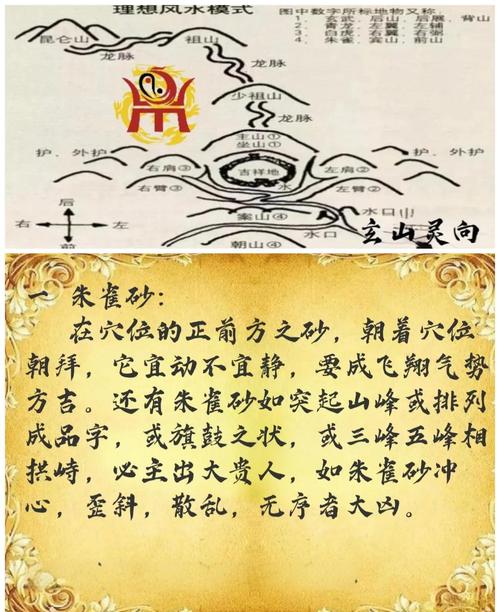 理想风水模式
图中数字所标地物又称:
1、玄武, 后山, 后展, 背山
2、青龙, 左翼, 左辅
3、白虎, 右翼, 右弼
4、朱雀, 宾山, 前山
昆仑山
祖山
龙脉
龙脉
少祖山
龙脉
主山①
坐山①
护、外护
护、外护
右肩③
左肩②
吉祥地
右臂③
水
左臂②
案山④
水口山
水口
水口
朝山④
后
右
左
前
玄山灵向
一 朱雀砂:
在穴位的正前方之砂，朝着穴位
朝拜，它宜动不宜静，要成飞翔气势
方吉。还有朱雀砂如突起山峰或排列
成品字，或旗鼓之状，或三峰五峰相
拱峙，必主出大贵人，如朱雀砂冲
心，歪斜，散乱，无序者大凶。